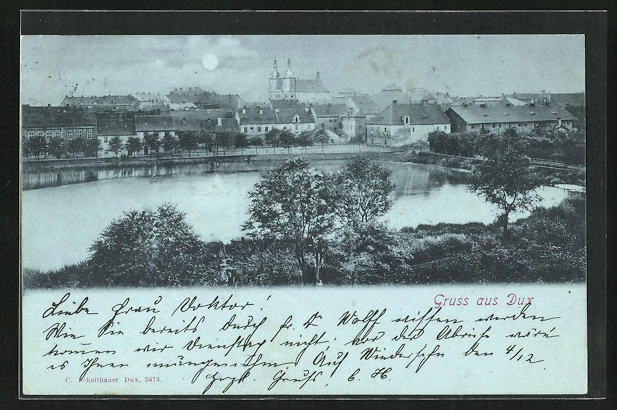 Gruss aus Dux
Liebe Frau Doktor!
Wie Sie bereits durch Fr. Dr. Wolff wissen werden
kommen wir Dienstag nicht, vor der Abreise wird
es Ihnen Auf Wiedersehn den 4/12
Herzl. Gruss! C. H.
C. Scheithauer Dux, 2673.